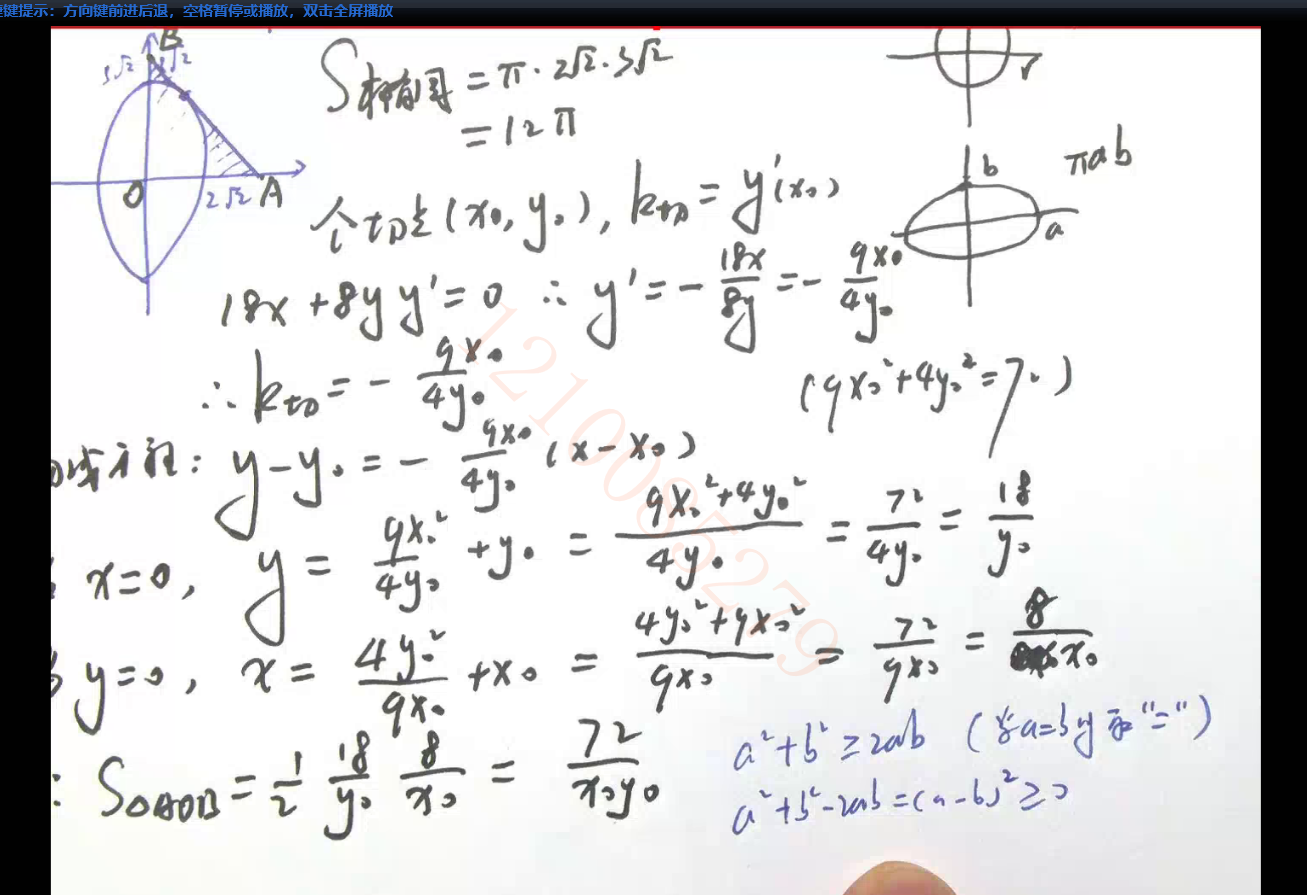 捷键提示：方向键前进后退，空格暂停或播放，双击全屏播放
B
3√2
O
2√2 A
S椭圆 = π·2√2·3√2
= 12π
r
b
a
πab
令切点(x₀, y₀), k切 = y'(x₀)
18x + 8y y' = 0 ∴ y' = - 18x/8y = - 9x₀/4y₀
∴ k切 = - 9x₀/4y₀
(9x₀² + 4y₀² = 72)
切线方程: y - y₀ = - 9x₀/4y₀ (x - x₀)
x = 0, y = 9x₀²/4y₀ + y₀ = (9x₀² + 4y₀²)/4y₀ = 72/4y₀ = 18/y₀
y = 0, x = 4y₀²/9x₀ + x₀ = (4y₀² + 9x₀²)/9x₀ = 72/9x₀ = 8/x₀
: S△AOB = 1/2 18/y₀ 8/x₀ = 72/x₀y₀
a² + b² ≥ 2ab (当a=b时取"=")
a² + b² - 2ab = (a - b)² ≥ 0
1210085279